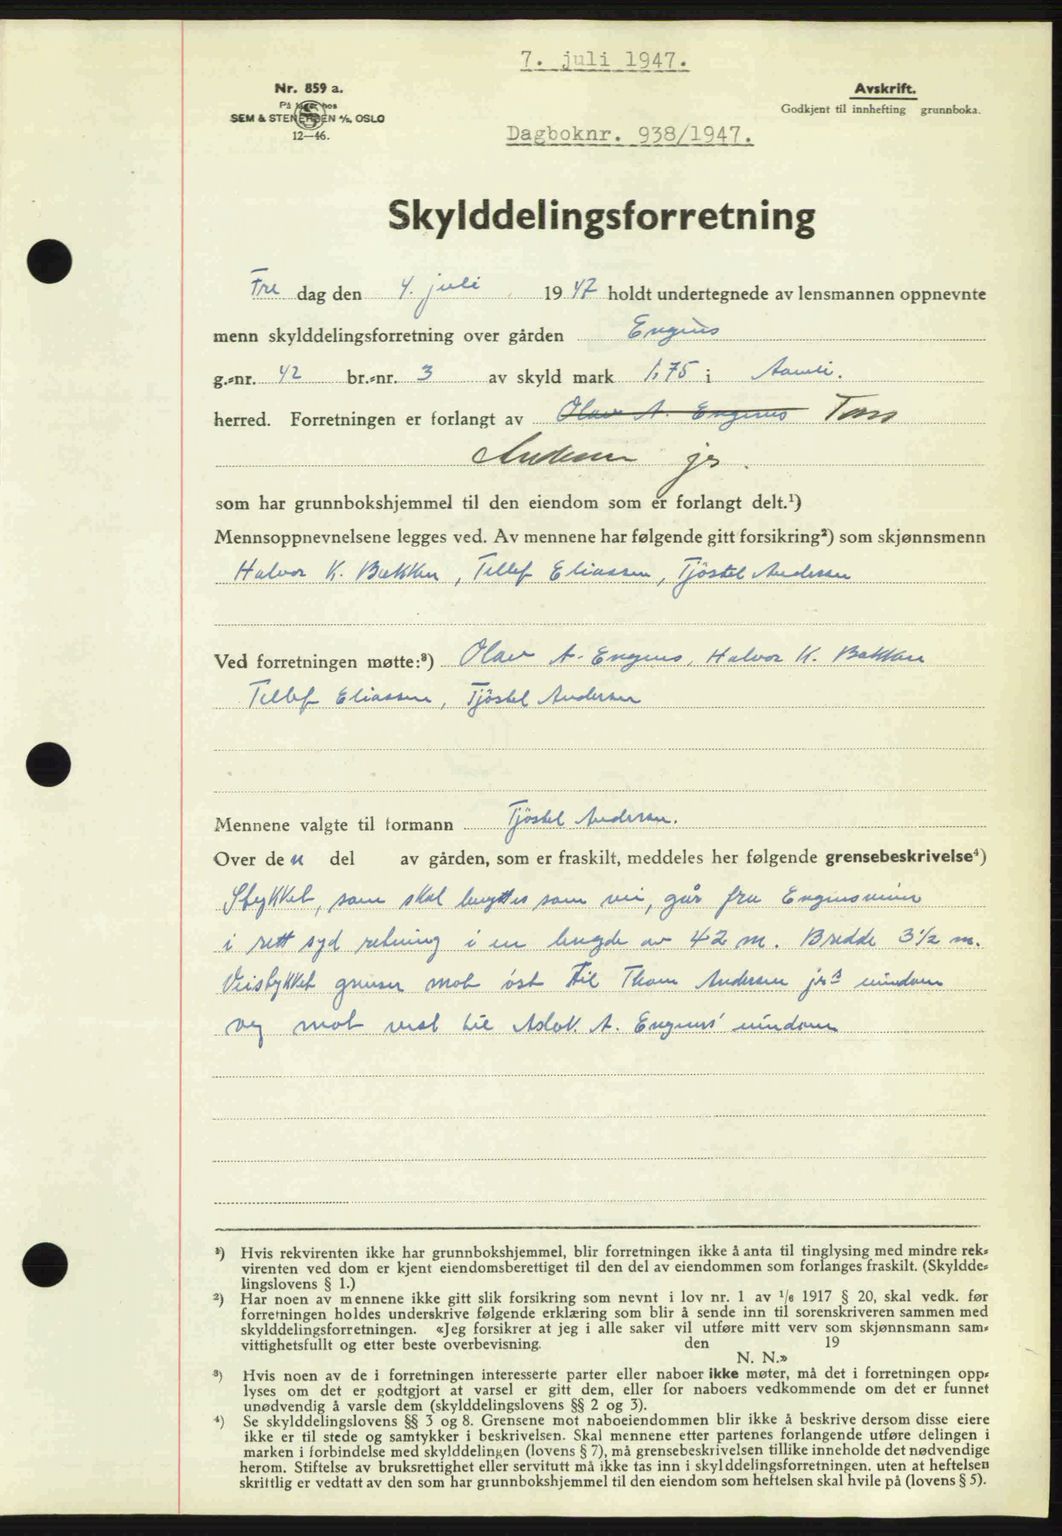 7. juli 1947.
Nr. 859 a.
På lager hos
SEM & STENERSEN A/S, OSLO
12—46.
Avskrift.
Godkjent til innhefting grunnboka.
Dagboknr. 938/1947.
Skylddelingsforretning
Fre dag den 4. juli 1947 holdt undertegnede av lensmannen oppnevnte
menn skylddelingsforretning over gården Engenes
g.-nr. 42 br.-nr. 3 av skyld mark 1,75 i Aamli.
herred. Forretningen er forlangt av Olav A. Engenes
Andersen jr.
som har grunnbokshjemmel til den eiendom som er forlangt delt.¹)
Mennsoppnevnelsene legges ved. Av mennene har følgende gitt forsikring²) som skjønnsmenn
Halvor K. Bakken, Tellef Eliassen, Tjöstel Andersen
Ved forretningen møtte:³) Olav A. Engenes, Halvor K. Bakken
Tellef Eliassen, Tjöstel Andersen
Mennene valgte til formann Tjöstel Andersen.
Over den del av gården, som er fraskilt, meddeles her følgende grensebeskrivelse⁴)
Stykket, som skal benyttes som vei, går fra Engenesveien
i rett syd retning i en lengde av 42 m. Bredde 3½ m.
Veistykket grenser mot öst til Thom Andersen jrs eiendom
og mot vest til Aslak A. Engenes' eiendom
¹) Hvis rekvirenten ikke har grunnbokshjemmel, blir forretningen ikke å anta til tinglysing med mindre rek-
virenten ved dom er kjent eiendomsberettiget til den del av eiendommen som forlanges fraskilt. (Skyldde-
lingslovens § 1.)
²) Har noen av mennene ikke gitt slik forsikring som nevnt i lov nr. 1 av 1/6 1917 § 20, skal vedk. før
forretningen holdes underskrive følgende erklæring som blir å sende inn til sorenskriveren sammen med
skylddelingsforretningen. «Jeg forsikrer at jeg i alle saker vil utføre mitt verv som skjønnsmann sam-
vittighetsfullt og etter beste overbevisning. den 19
N. N.»
³) Hvis noen av de i forretningen interesserte parter eller naboer ikke møter, må det i forretningen opp-
lyses om det er godtgjort at varsel er gitt dem, eller for naboers vedkommende om det er funnet
unødvendig å varsle dem (skylddelingslovens §§ 2 og 3).
⁴) Se skylddelingslovens §§ 3 og 8. Grensene mot naboeiendommen blir ikke å beskrive dersom disse eiere
ikke er til stede og samtykker i beskrivelsen. Skal mennene etter partenes forlangende utføre delingen i
marken i forbindelse med skylddelingen (lovens § 7), må grensebeskrivelsen tillike inneholde det nødvendige
herom. Stiftelse av bruksrettighet eller servitutt må ikke tas inn i skylddelingsforretningen, uten at heftelsen
skriftlig er vedtatt av den som har grunnbokshjemmel til den eiendom som heftelsen skal hvile på (lovens § 5).